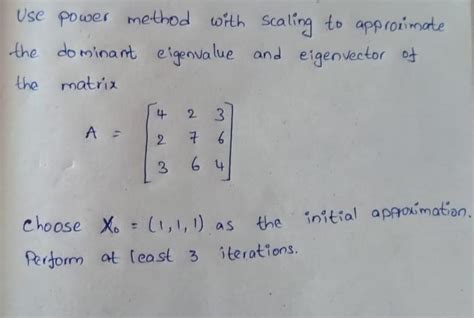 Use power method with scaling to approximate
the dominant eigenvalue and eigenvector of
the matrix
4 2 3
A = 2 7 6
3 6 4
choose X₀ = (1,1,1) as the initial approximation.
Perform at least 3 iterations.